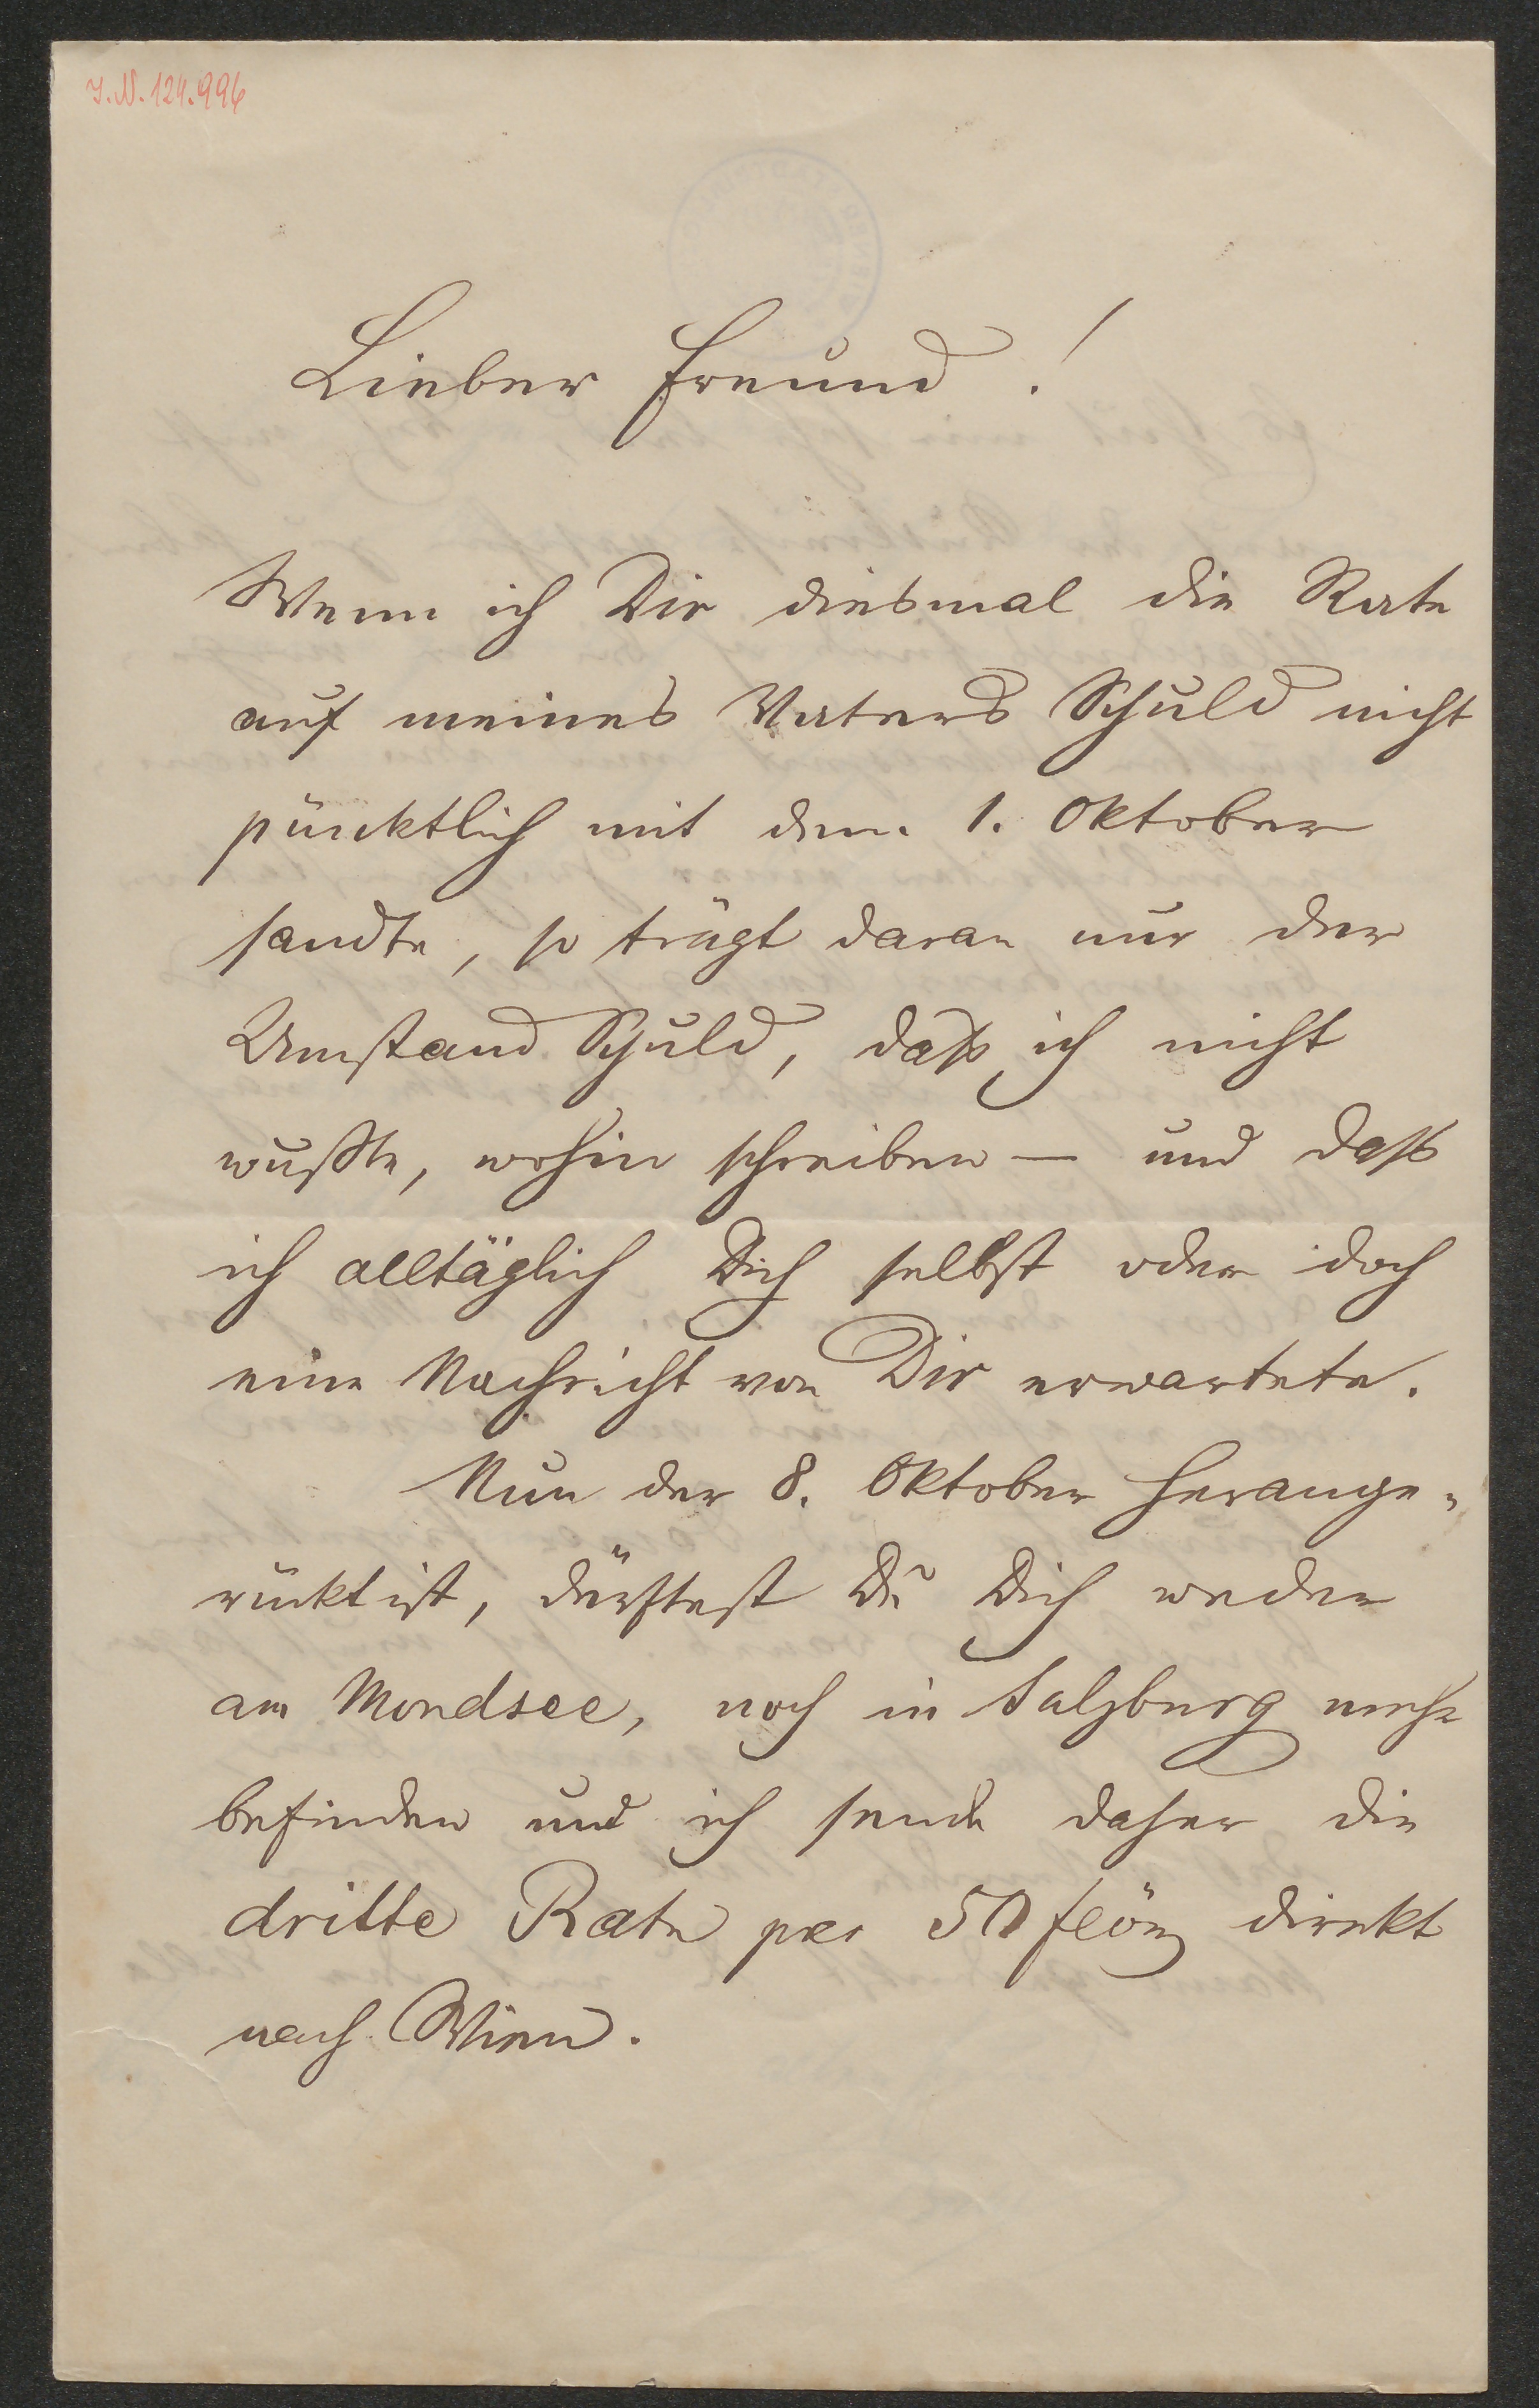 I.N. 124.996
Lieber Freund!
Wenn ich Dir diesmal die Rate
auf meines Vaters Schuld nicht
pünktlich mit dem 1. Oktober
sandte, so trägt daran nur der
Umstand Schuld, daß ich nicht
wußte, wohin schreiben — und daß
ich alltäglich Dich selbst oder doch
eine Nachricht von Dir erwartete.
Nun der 8. Oktober herange-
rückt ist, dürftest Du Dich weder
am Mondsee, noch in Salzburg mehr
befinden und ich sende daher die
dritte Rate per 50 fl ö W direkt
nach Wien.